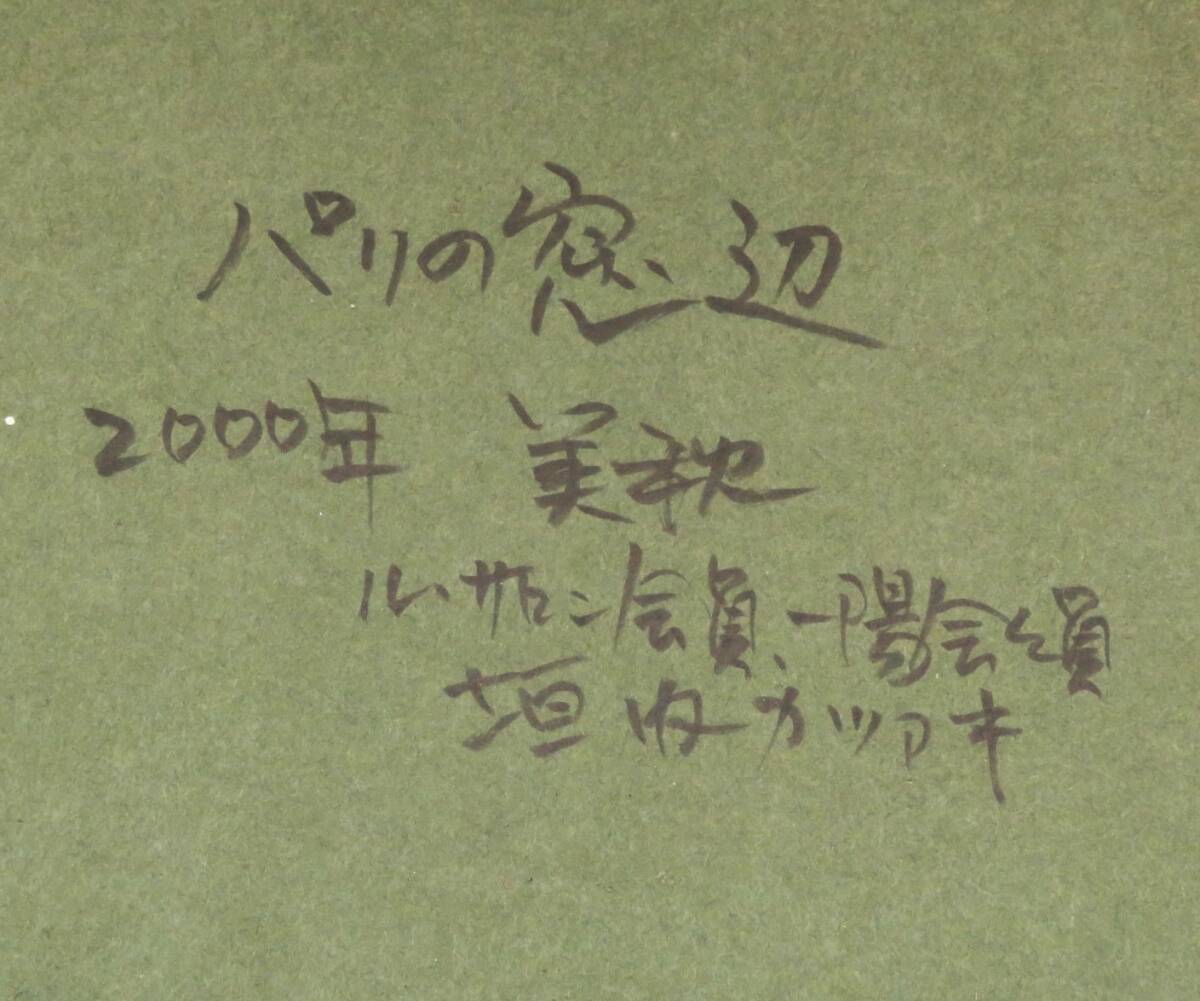 パリの窓辺
2000年 美秋
ル・サロン会員、一陽会々員
垣内カツアキ